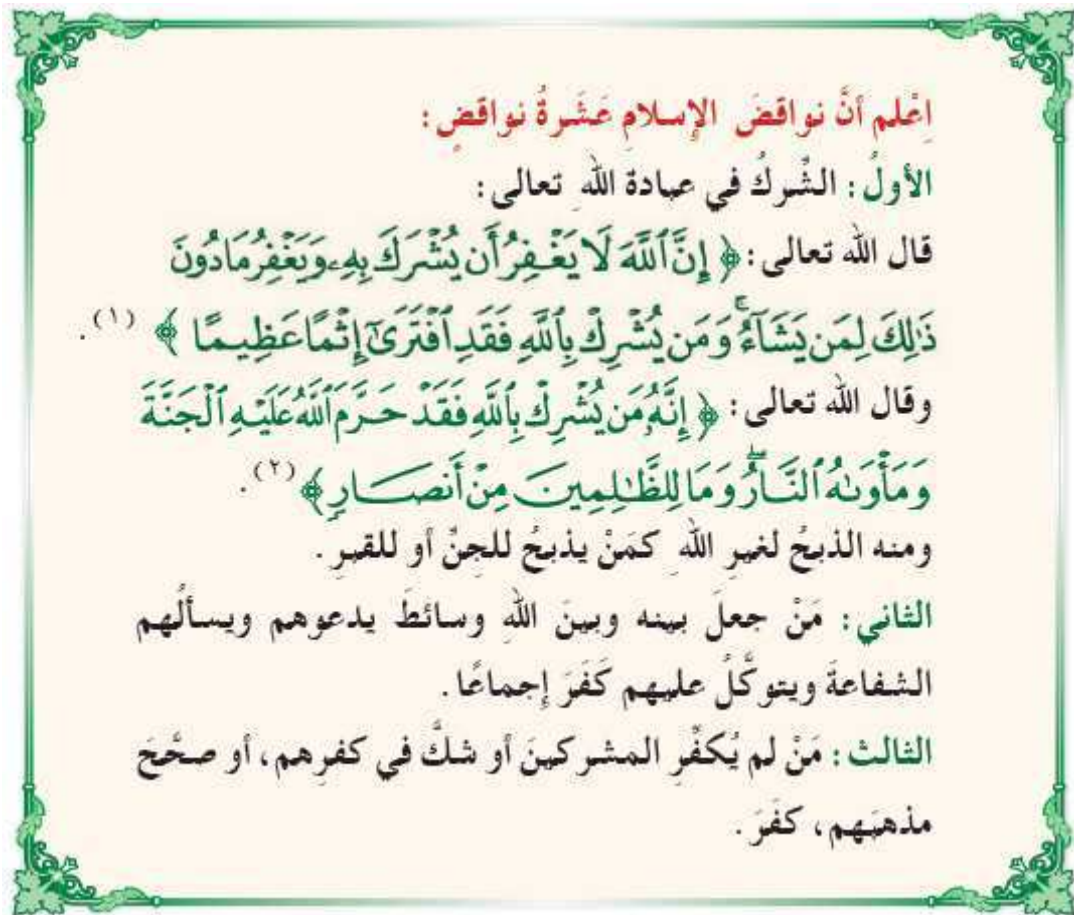 اِعْلم أنَّ نواقضَ الإسلامِ عَشَرةُ نواقضٍ:
الأولُ: الشِّركُ في عبادة اللهِ تعالى:
قال الله تعالى: ﴿إِنَّ ٱللَّهَ لَا يَغْفِرُ أَن يُشْرَكَ بِهِۦ وَيَغْفِرُ مَا دُونَ
ذَٰلِكَ لِمَن يَشَآءُۚ وَمَن يُشْرِكْ بِٱللَّهِ فَقَدِ ٱفْتَرَىٰٓ إِثْمًا عَظِيمًا﴾ (١).
وقال الله تعالى: ﴿إِنَّهُۥ مَن يُشْرِكْ بِٱللَّهِ فَقَدْ حَرَّمَ ٱللَّهُ عَلَيْهِ ٱلْجَنَّةَ
وَمَأْوَىٰهُ ٱلنَّارُۖ وَمَا لِلظَّٰلِمِينَ مِنْ أَنصَارٍ﴾ (٢).
ومنه الذبحُ لغيرِ اللهِ كمَنْ يذبحُ للجِنِّ أو للقبرِ.
الثاني: مَنْ جعلَ بينه وبينَ اللهِ وسائطَ يدعوهم ويسألُهم
الشفاعةَ ويتوكَّلُ عليهم كَفَرَ إجماعًا.
الثالث: مَنْ لم يُكفِّرِ المشركينَ أو شكَّ في كفرِهم، أو صحَّحَ
مذهبَهم، كفَرَ.